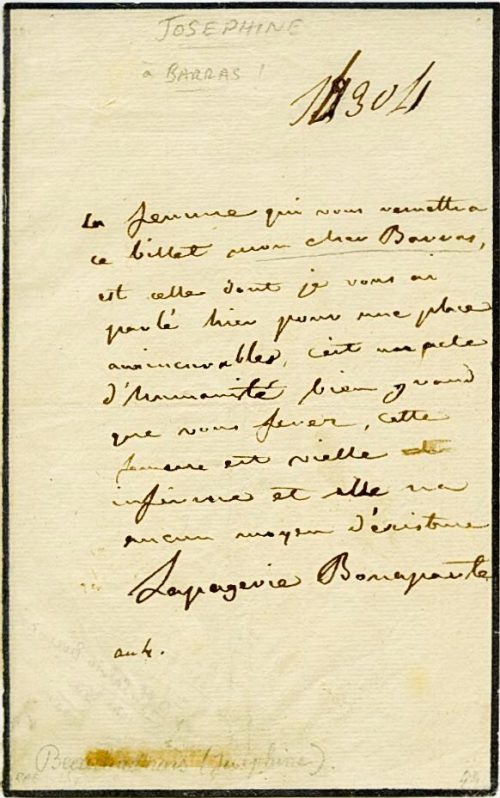 JOSEPHINE
à BARRAS !
14304
La femme qui vous remettra
ce billet mon cher Barras,
est celle dont je vous ai
parlé hier pour une place
aux incurables, c'est un acte
d'humanité bien grand
que vous ferer, cette
femme est vielle et
infirme et elle na
aucun moyen d'existance
Lapagerie Bonaparte
an 4.
Beauharnais (Joséphine).